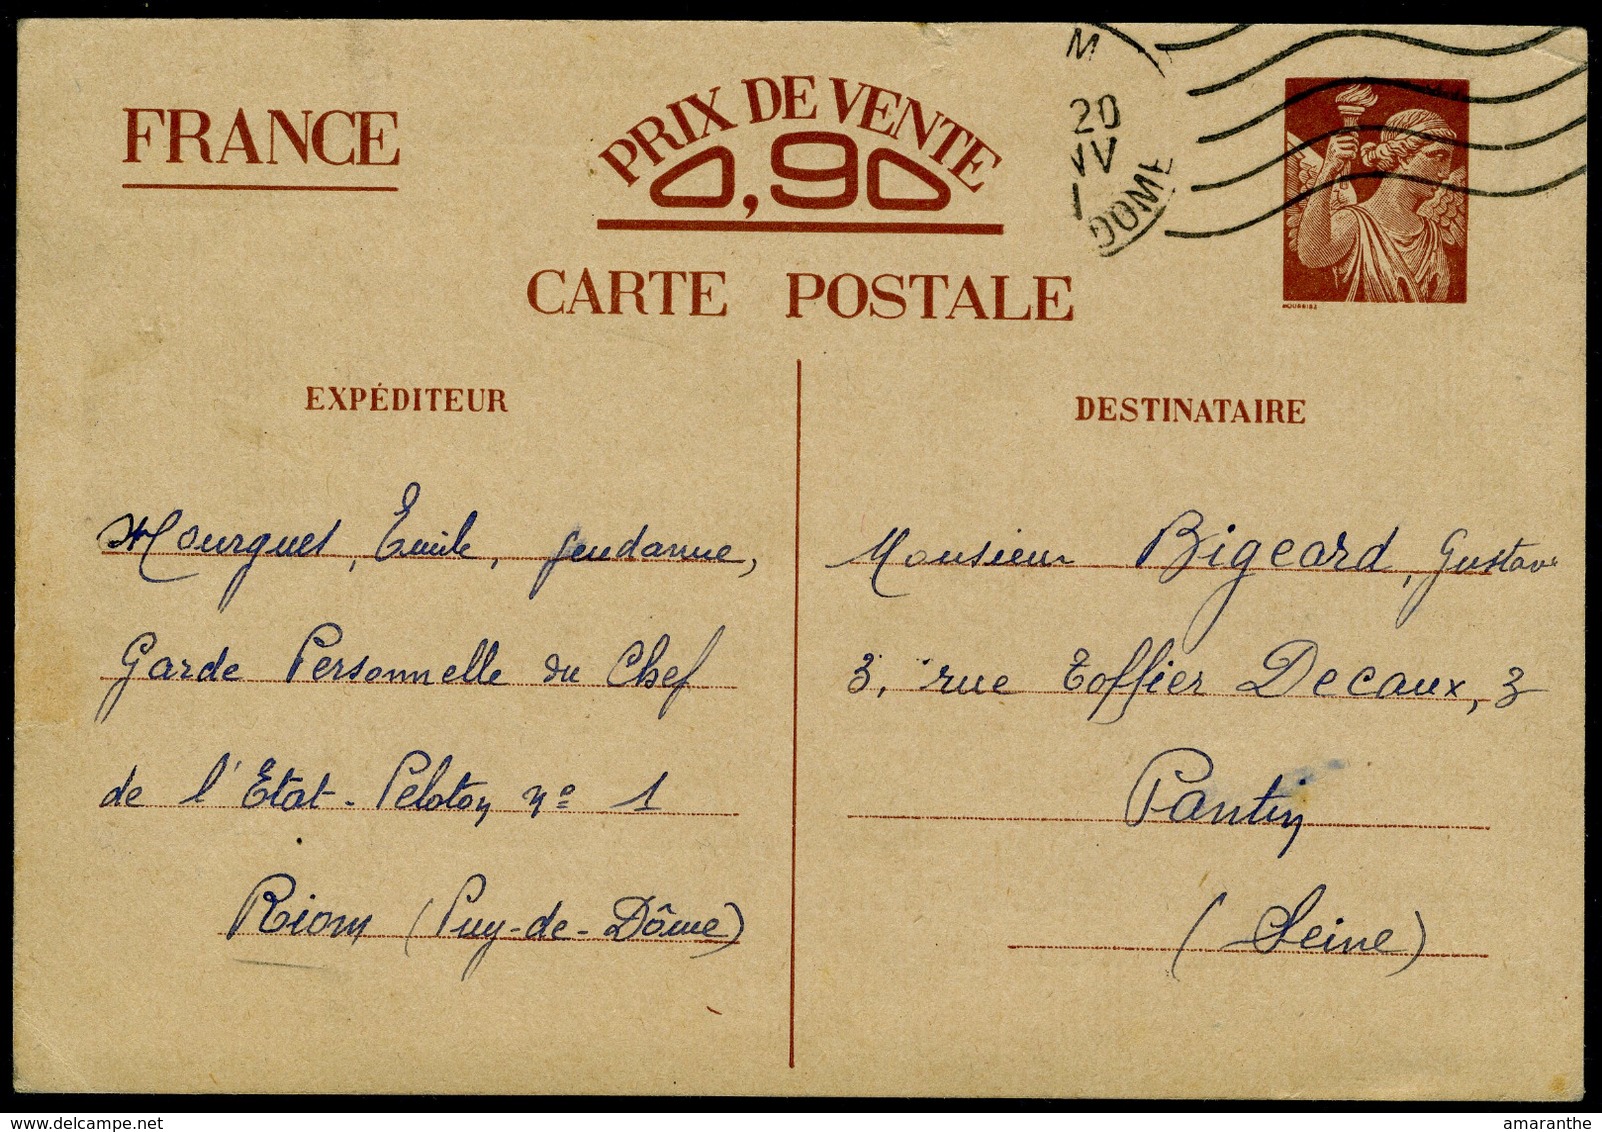 FRANCE
PRIX DE VENTE
0,90
CARTE POSTALE
M
20
DOME
EXPÉDITEUR
Mourguet, Emile, gendarme,
Garde Personnelle du Chef
de l'Etat - Peloton nº 1
Riom (Puy-de-Dôme)
DESTINATAIRE
Monsieur Bigeard, Gustave
3, rue Toffier Decaux, 3
Pantin
(Seine)
amaranthe